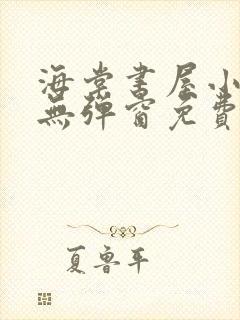 海棠書屋小
無彈窗免費
夏魯平